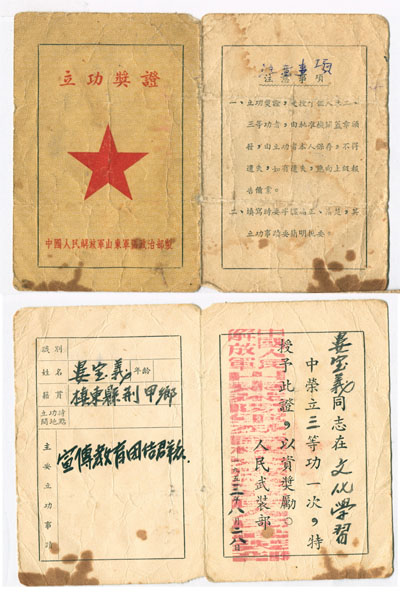 立功獎證
中國人民解放軍山東軍區政治部製
注意事項
一、立功獎證，是授予個人立二、
三等功者，由批准機關蓋章填
發，由立功者本人保存，不得
遺失，如有遺失，應向上級報
告備案。
二、填寫時要字正、清楚，其
立功事蹟要簡明扼要。
級別
姓名 婁宝義 年齡
籍貫 鎮東縣刑甲鄉
立功時間地點
主要立功事蹟
宣傳教育团结群众.
婁宝義同志在文化學習
中榮立三等功一次，特
授予此證，以資獎勵。
人民武裝部
一九五三年八月二八日